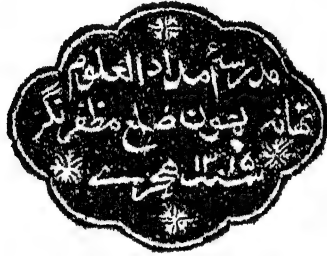 مدرسۂ امداد العلوم
تھانہ بھون ضلع مظفرنگر
سنہ ۱۳۱۵ ہجرے